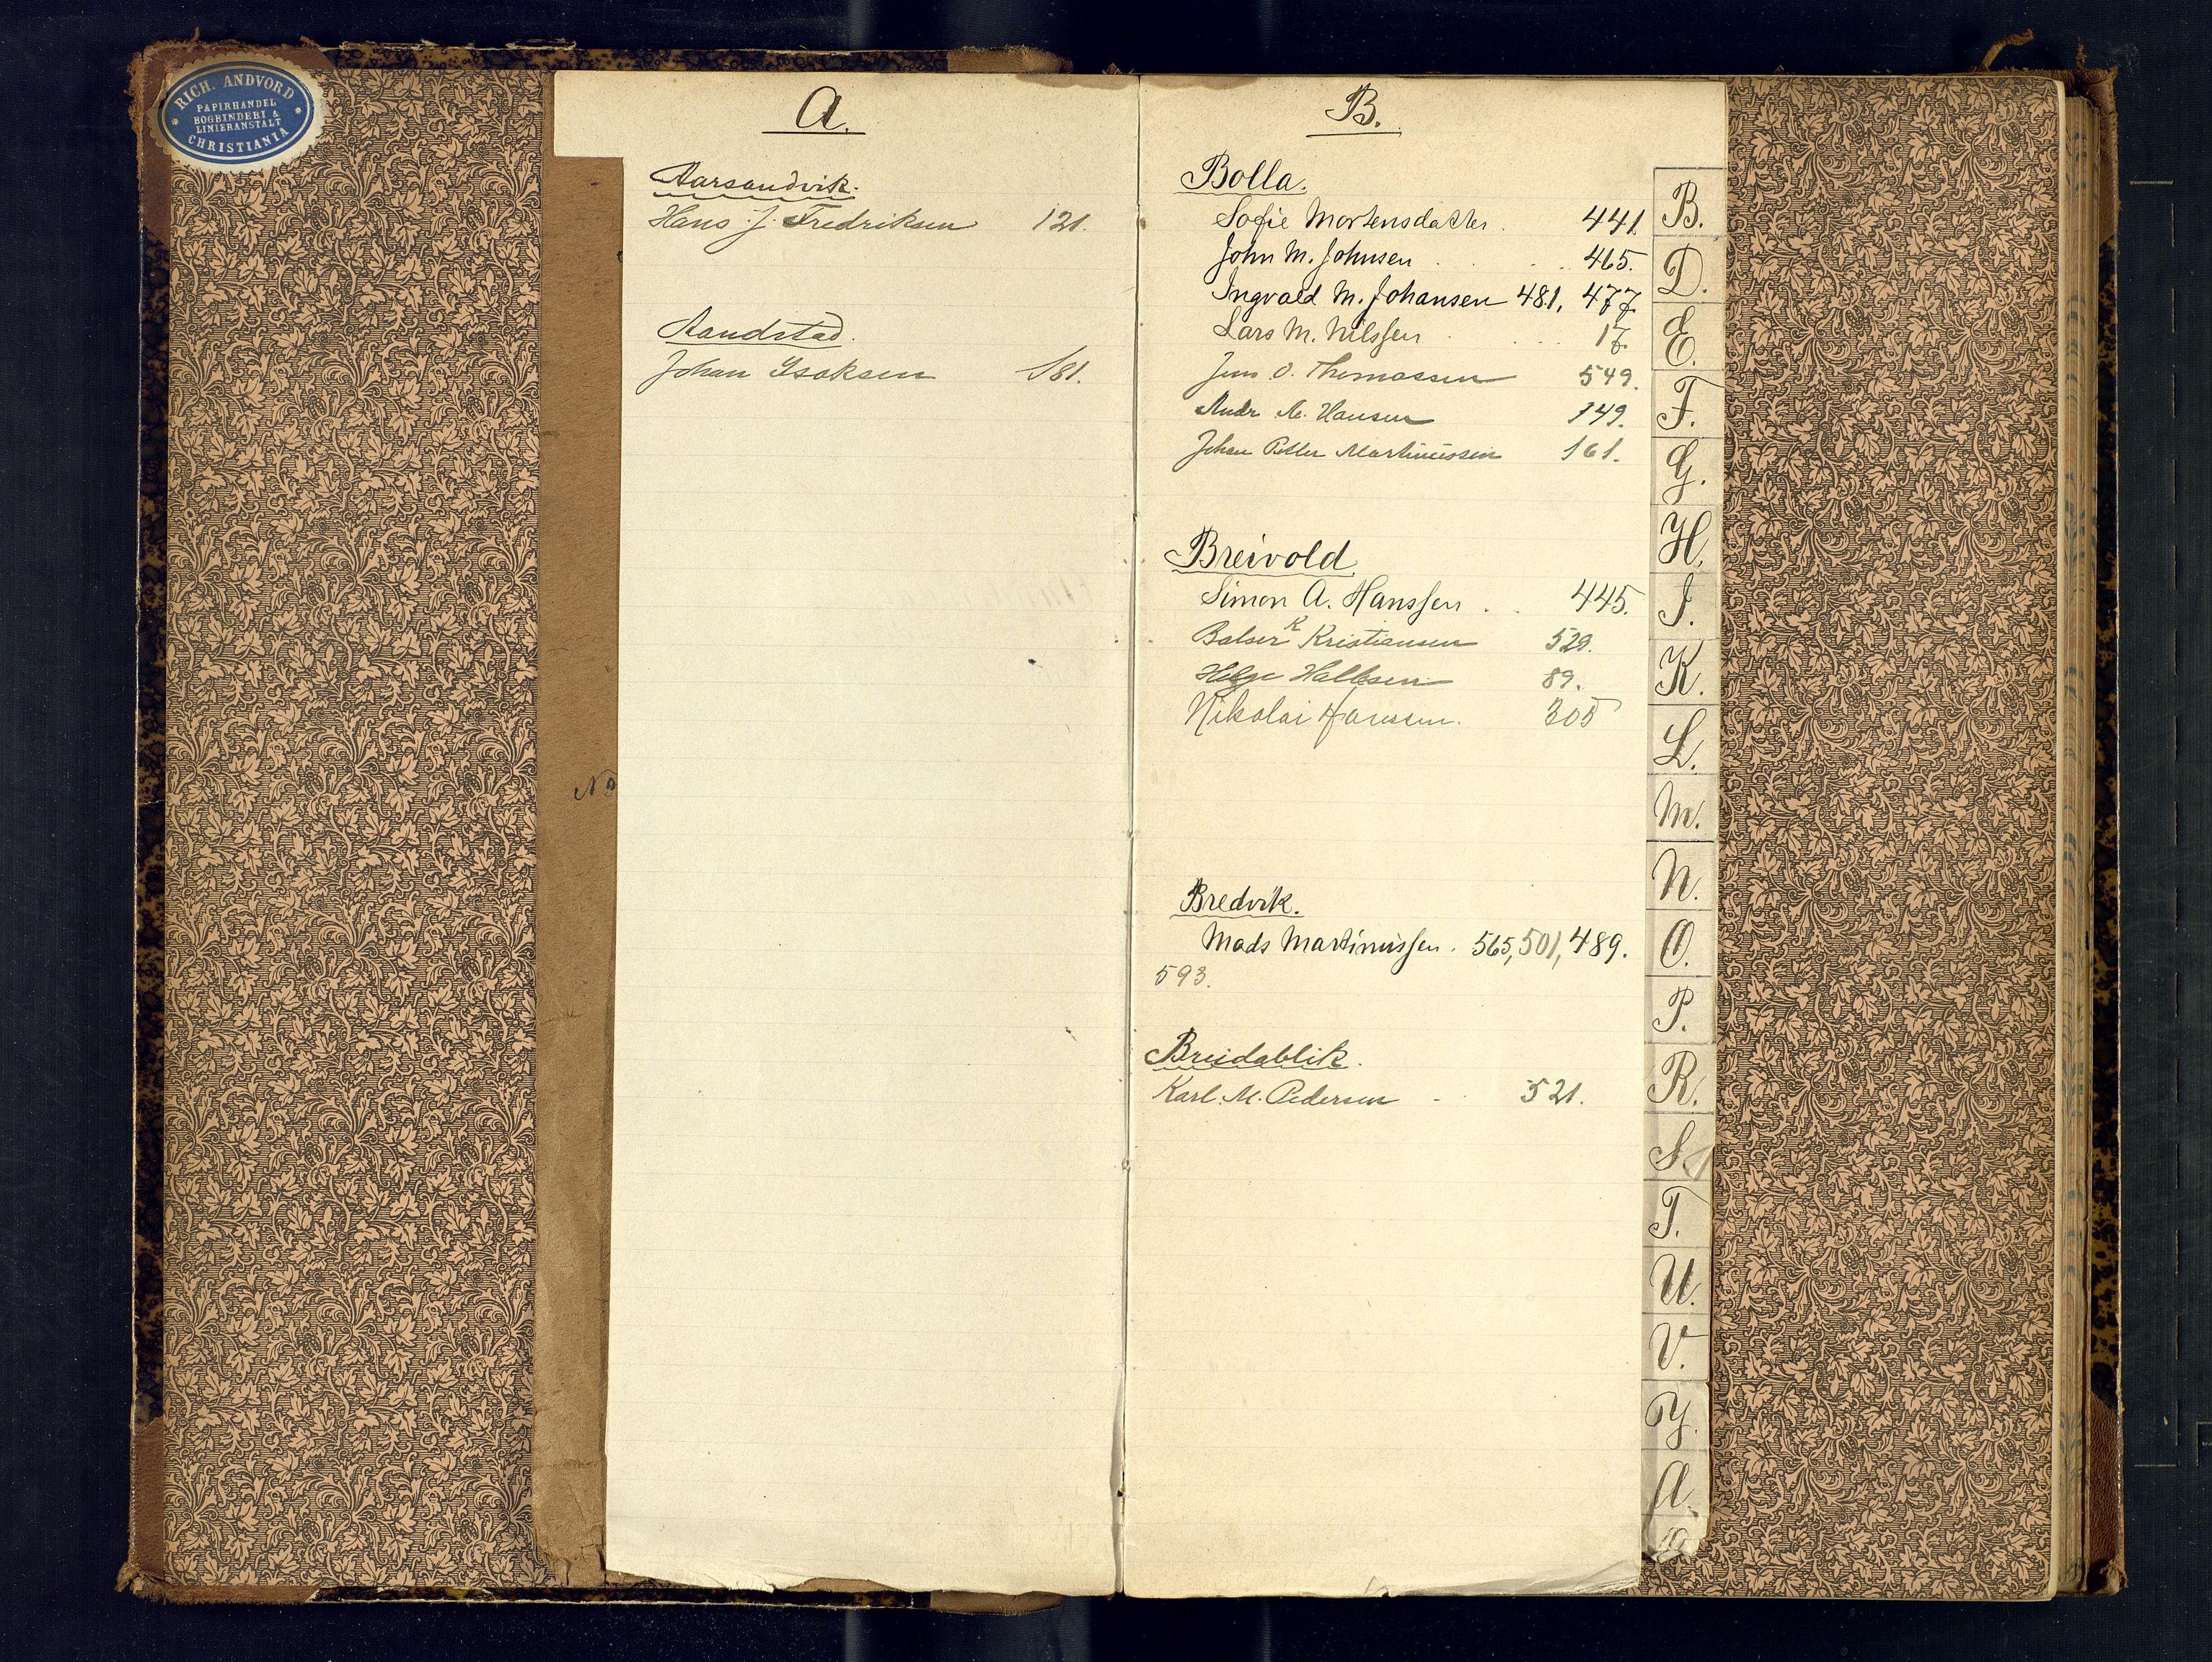 RICH. ANDVORD
PAPIRHANDEL
BOGBINDERI &
LINIERANSTALT
CHRISTIANIA
No
A.
Aarsandvik.
Hans J. Fredriksen 121.
Aandstad.
Johan Isaksen 181.
B.
Bolla.
Sofie Mortensdatter. 441.
John M. Johnsen . . . . 465.
Ingvald M. Johansen 481, 477
Lars M. Nilssen . . . . 17
Jens O. Thomassen 549.
Andr. A. Hansen 149.
Johan Petter Martinussen 161.
Breivold.
Simon A. Hanssen . . 445.
Balser K Kristiansen 529.
Helge Hallesen 89.
Nikolai Hanssen. 305
Bredvik.
Mads Martinussen. 565, 501, 489.
593.
Breidablik.
Karl. M. Pedersen - 521.
B.
D.
E.
F.
G.
H.
J.
K.
L.
M.
N.
O.
P.
R.
S.
T.
U.
V.
Y.